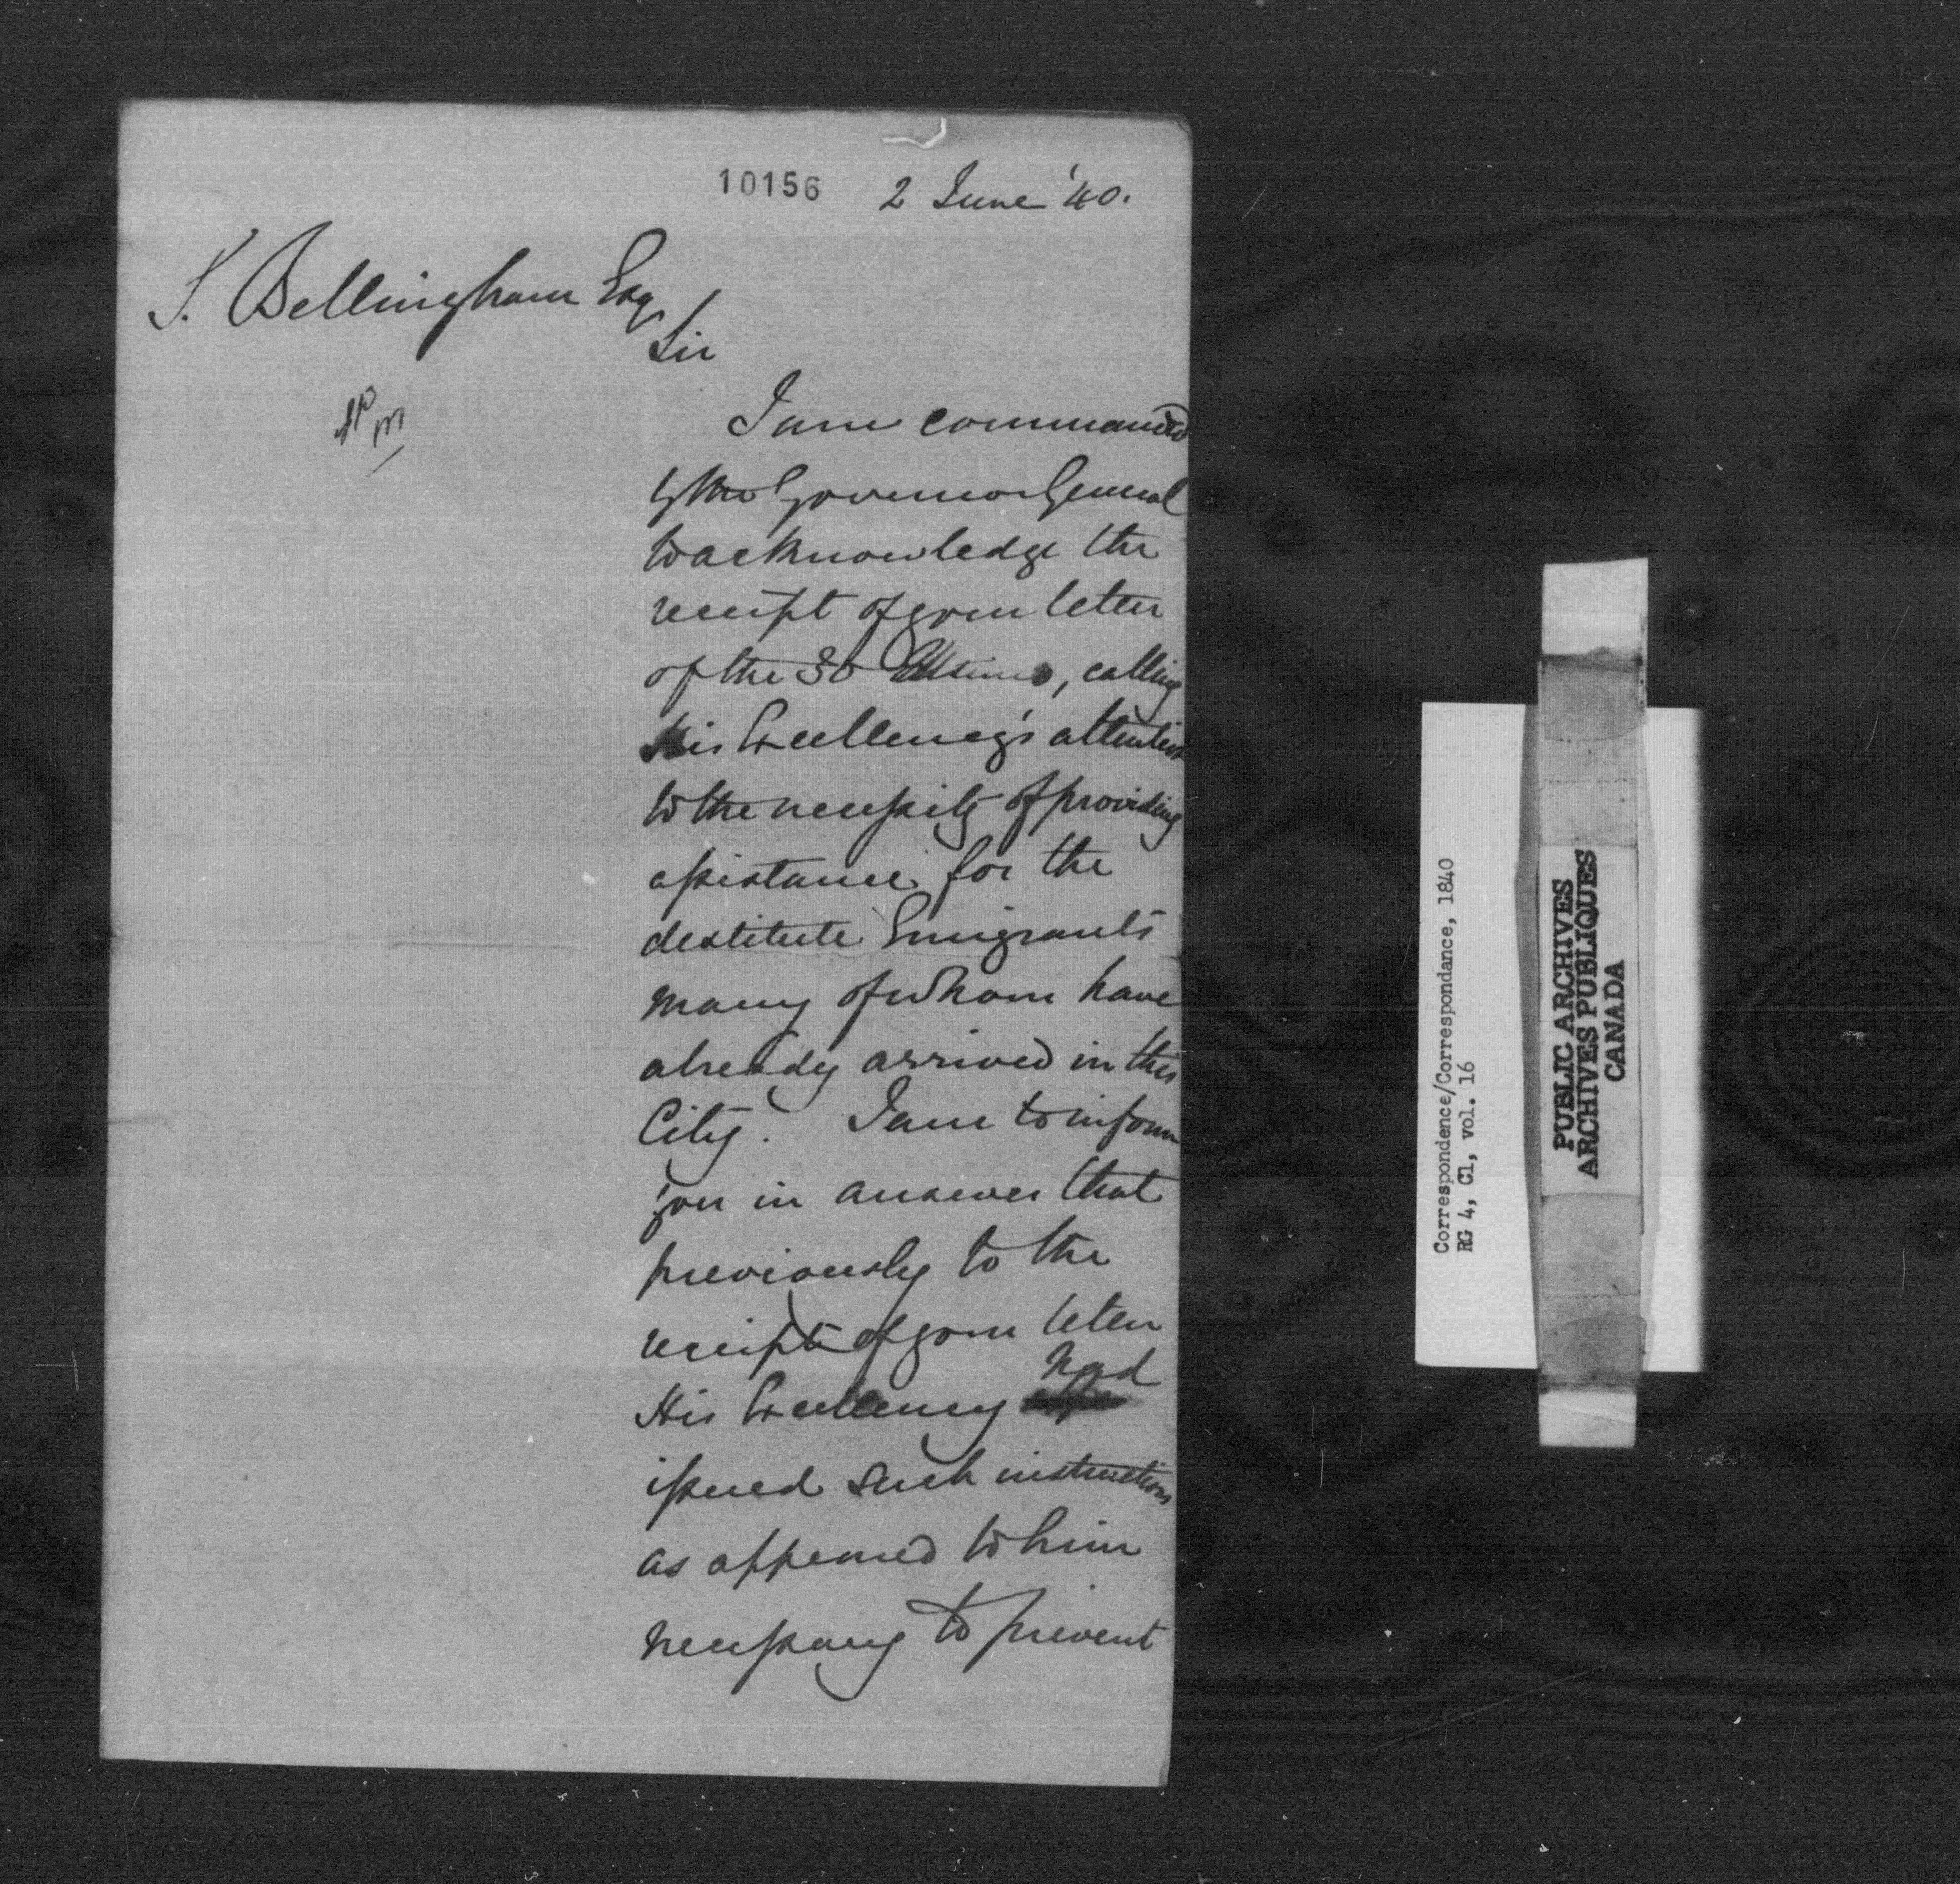 10156 2 June '40.
S. Bellingham Esq
Sir
I am commanded
by the Governor General
to acknowledge the
receipt of your letter
of the 30 Ultimo, calling
His Excellency's attention
to the necessity of providing
assistance for the
destitute Emigrants
many of whom have
already arrived in this
City. I am to inform
you in answer that
previously to the
receipt of your letter
had
His Excellency
issued such instructions
as appeared to him
necessary to prevent
Correspondence/Correspondance, 1840
RG 4, C1, vol. 16
PUBLIC ARCHIVES
ARCHIVES PUBLIQUES
CANADA